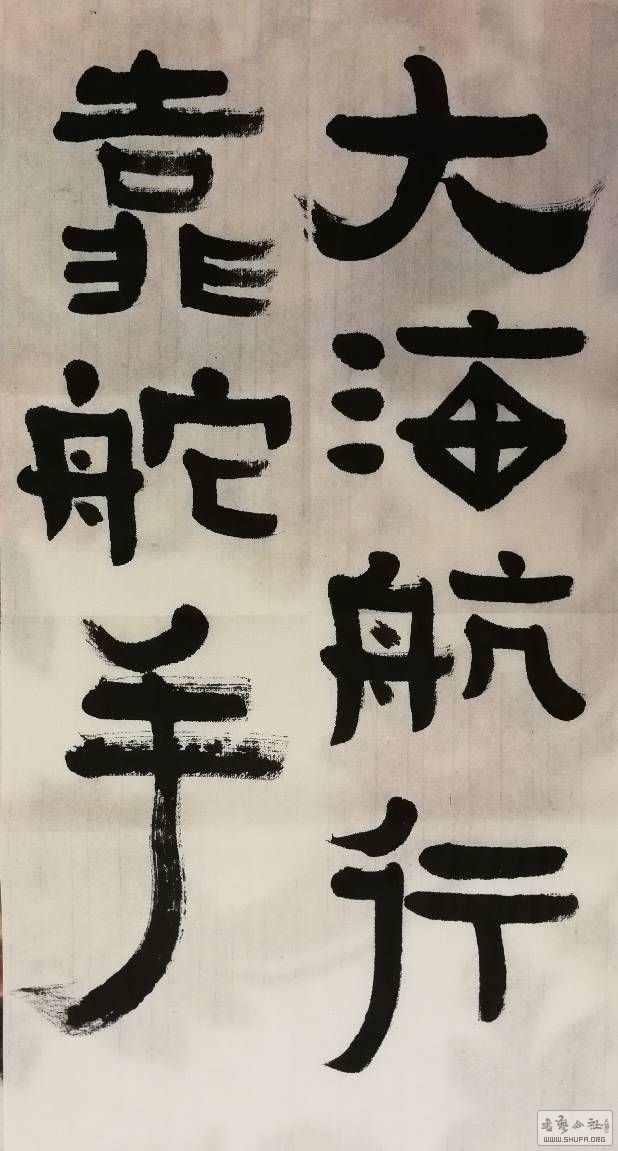 大海航行
靠舵手
书艺公社
WWW.SHUFA.ORG